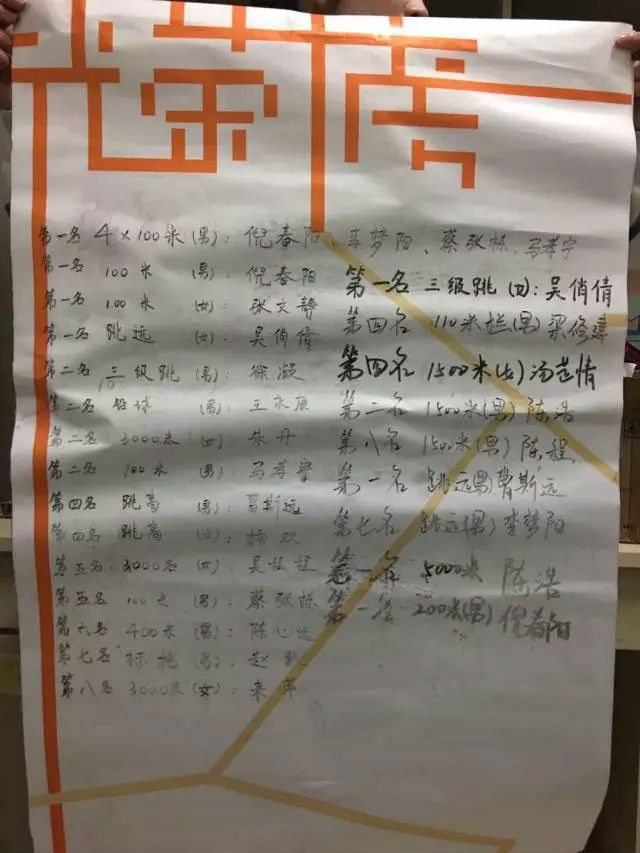 光荣榜
第一名 4×100米(男): 倪春阳、李梦阳、蔡张栋、马孝宇
第一名 100米 (男): 倪春阳
第一名 100米 (女): 张文静
第一名 跳远 (女): 吴俏倩
第二名 三级跳 (男): 徐凝
第二名 铅球 (男): 王水
第二名 3000米 (女): 朱丹
第二名 100米 (男): 马孝宇
第四名 跳高 (男): 斯远
第四名 跳高 (女): 杨双
第五名 3000名 (女): 吴
第五名 100米 (男): 蔡张栋
第六名 400米 (男): 陈心远
第七名 标枪 (男): 赵
第八名 3000米 (女):
第一名 三级跳 (女): 吴俏倩
第四名 110米栏(男) 梁修建
第四名 1500米(女) 汤芷情
第二名 1500米(男) 陈浩
第八名 1500米(男) 陈程
第一名 跳远(男) 费斯远
第七名 跳远(男) 李梦阳
第一名 5000米 陈浩
第一名 200米(男) 倪春阳